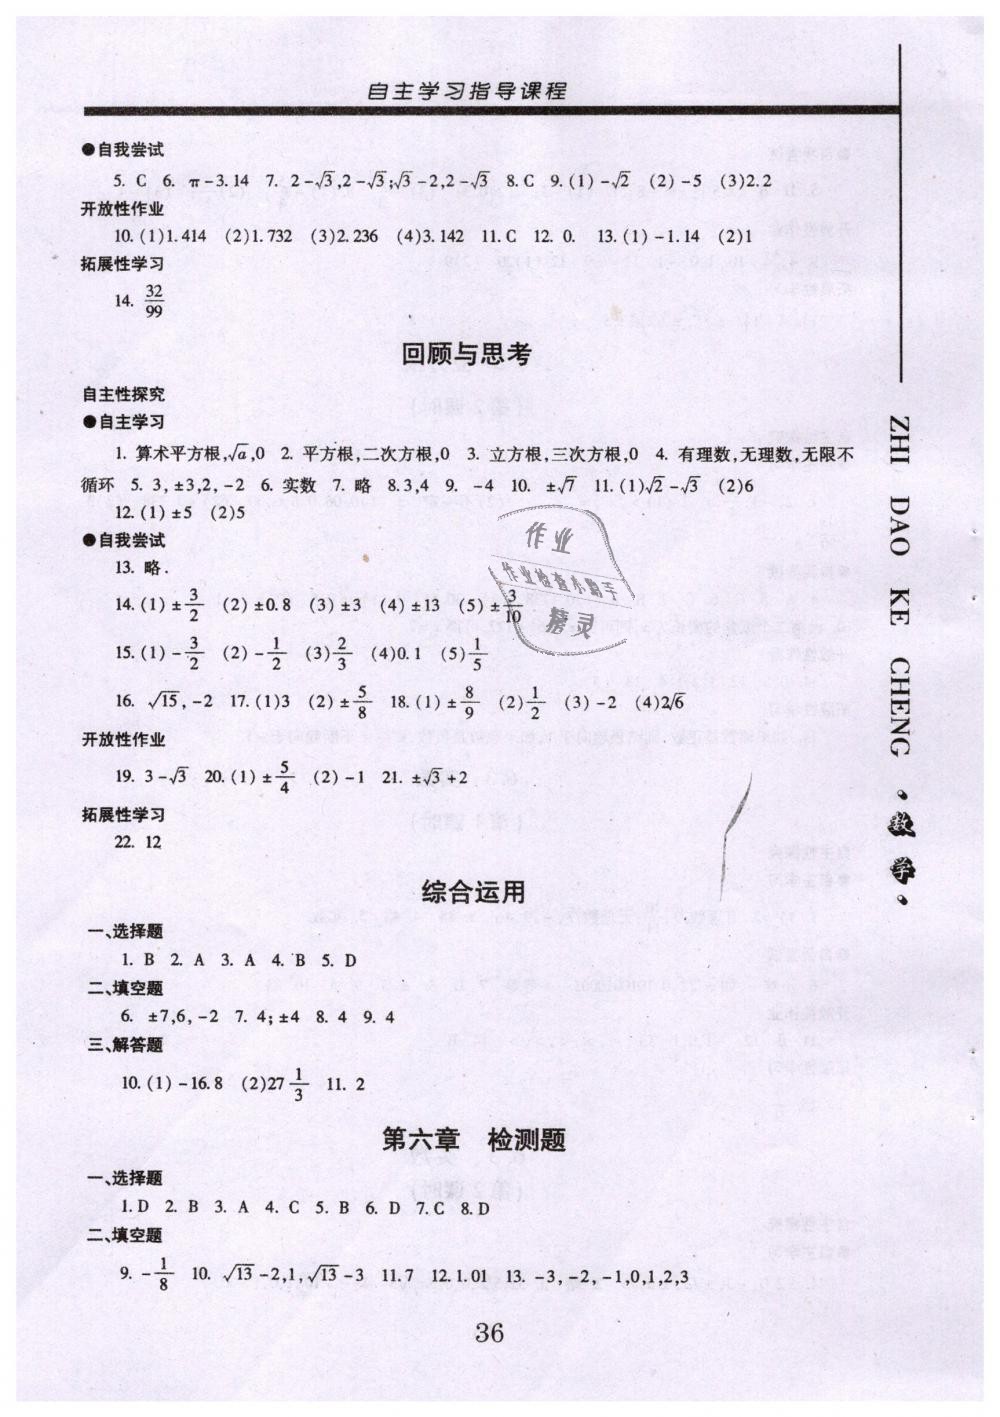 自主学习指导课程
●自我尝试
5. C 6. π-3.14 7. 2-√3,2-√3;√3-2,2-√3 8.C 9.(1)-√2 (2)-5 (3)2.2
开放性作业
10.(1)1.414 (2)1.732 (3)2.236 (4)3.142 11.C 12. 0. 13.(1)-1.14 (2)1
拓展性学习
14. 32/99
回顾与思考
自主性探究
●自主学习
1. 算术平方根,√a,0 2. 平方根,二次方根,0 3. 立方根,三次方根,0 4. 有理数,无理数,无限不
循环 5. 3,±3,2,-2 6. 实数 7. 略 8.3,4 9. -4 10. ±√7 11.(1)√2-√3 (2)6
12.(1)±5 (2)5
●自我尝试
13. 略.
14.(1)±3/2 (2)±0.8 (3)±3 (4)±13 (5)±3/10
15.(1)-3/2 (2)-1/2 (3)2/3 (4)0.1 (5)1/5
16. √15,-2 17.(1)3 (2)±5/8 18.(1)±8/9 (2)1/2 (3)-2 (4)2√6
开放性作业
19. 3-√3 20.(1)±5/4 (2)-1 21. ±√3+2
拓展性学习
22. 12
综合运用
一、选择题
1. B 2. A 3. A 4. B 5. D
二、填空题
6. ±7,6,-2 7. 4;±4 8. 4 9. 4
三、解答题
10.(1)-16.8 (2)27 1/3 11. 2
第六章 检测题
一、选择题
1. D 2. B 3. A 4. C 5. B 6. D 7. C 8. D
二、填空题
9. -1/8 10. √13-2,1,√13-3 11.7 12.1.01 13. -3,-2,-1,0,1,2,3
36
ZHI DAO KE CHENG·数学·
作业
作业检查小助手
精灵